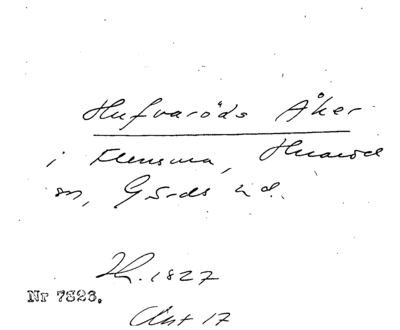 Hufvaröds Åker
i Flensma, Huaröd
sn, Gärds hd.
H. 1827
Nr 7823.
Akt 17